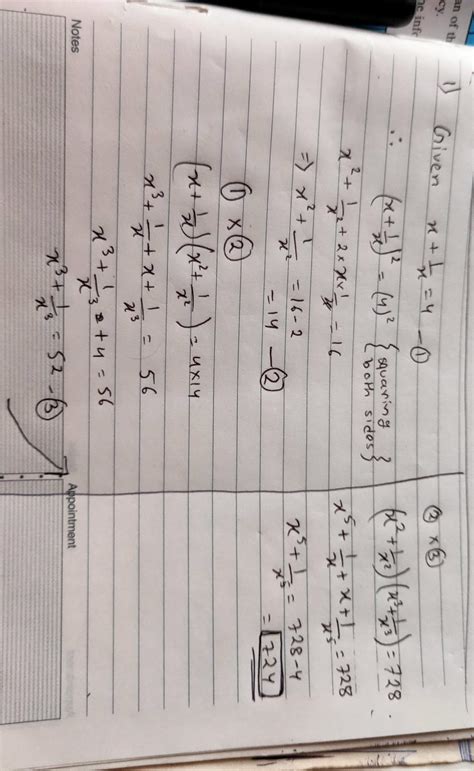 an of th
cy.
he info
1) Given x + 1/x = 4 — ①
∴ (x + 1/x)² = (4)² {squaring both sides}
x² + 1/x² + 2 × x × 1/x = 16
⇒ x² + 1/x² = 16 - 2
= 14 — ②
① × ②
(x + 1/x)(x² + 1/x²) = 4 × 14
x³ + 1/x + x + 1/x³ = 56
x³ + 1/x³ + 4 = 56
x³ + 1/x³ = 52 — ③
② × ③
(x² + 1/x²)(x³ + 1/x³) = 728
x⁵ + 1/x + x + 1/x⁵ = 728
x⁵ + 1/x⁵ = 728 - 4
= 724
Notes
Appointment